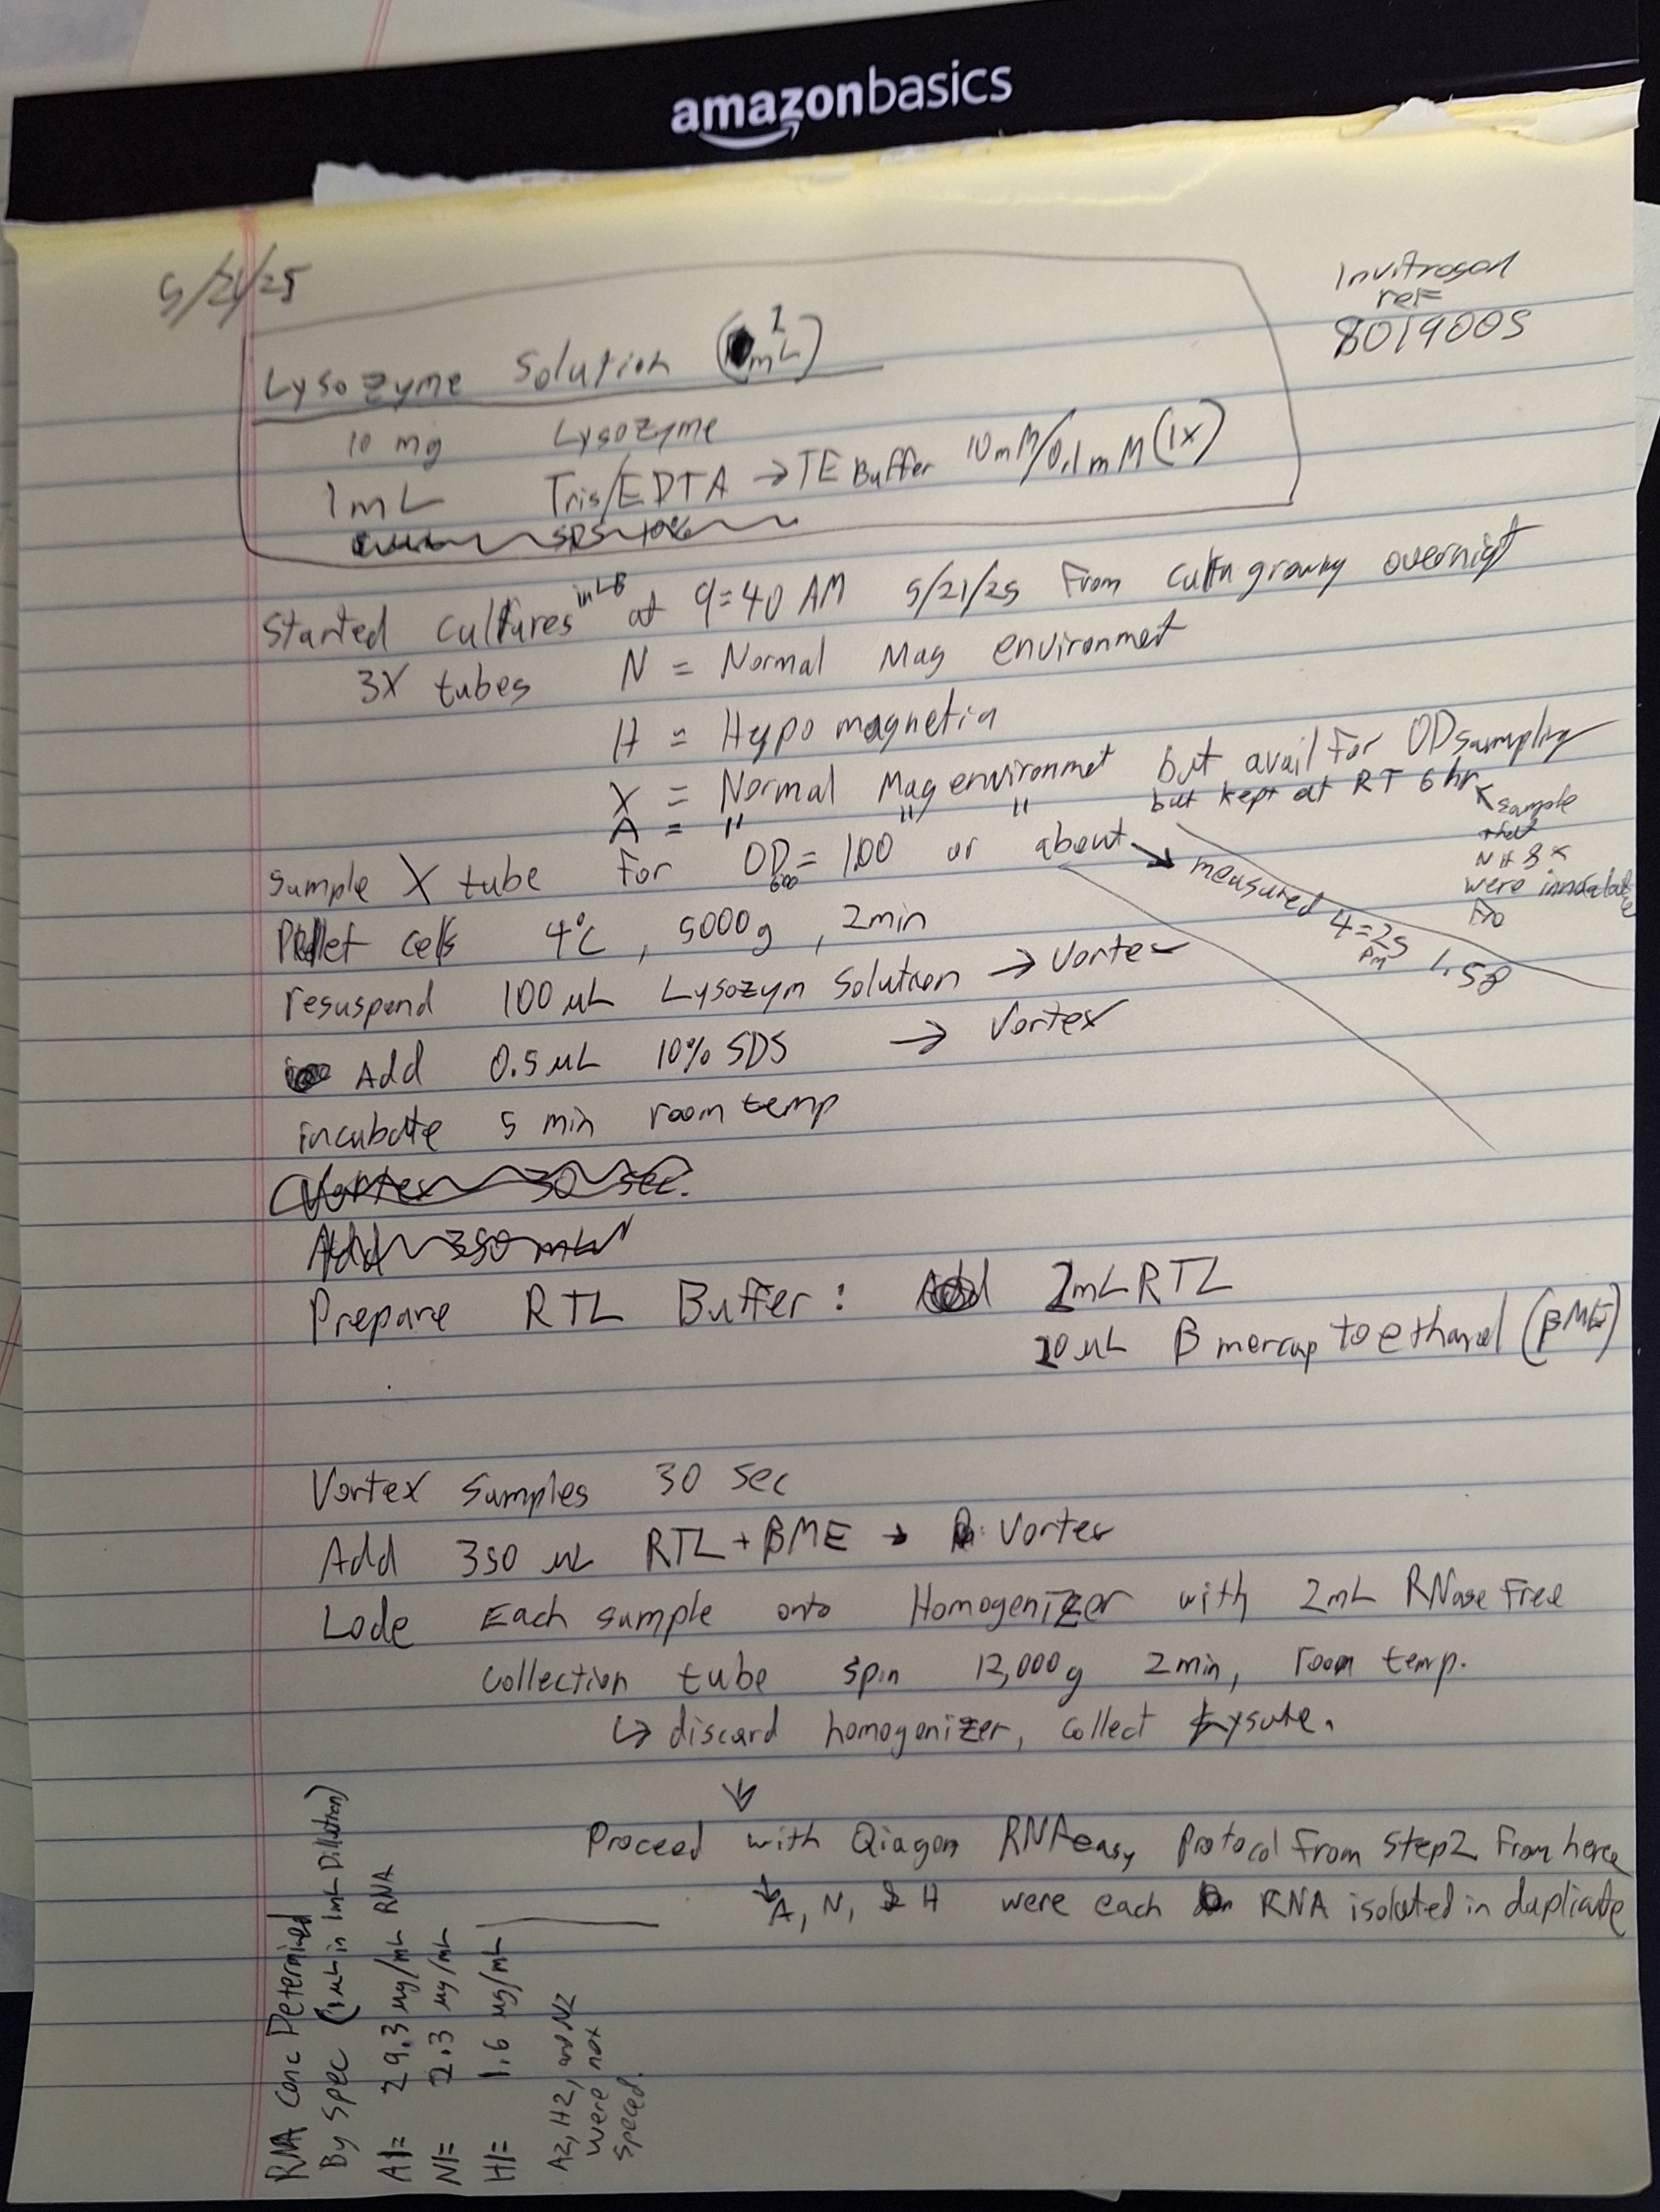 amazonbasics
5/21/25
Invitrogen
ref
8019005
Lysozyme Solution (1 mL)
10 mg Lysozyme
1mL Tris/EDTA → TE Buffer 10mM/0.1mM (1X)
SDS 10%
Started cultures in LB at 9:40 AM 5/21/25 From growing overnight
3X tubes N = Normal Mag environment
H = Hypomagnetic
X = Normal Mag environmet but avail For OD sampling
A = " " " but kept at RT 6 hr ← sample
that
N H & X
were
Sample X tube For OD600 = 1.00 or about → measured 4:25 pm 1.58
Pellet cells 4°C, 5000g, 2min
resuspend 100 µL Lysozym Solution → Vortex
Add 0.5 µL 10% SDS → Vortex
incubate 5 min room temp
Vortex 30 sec.
Add 350 mL
Prepare RTL Buffer: Add 2mL RTL
20 µL β mercaptoethanol (βME)
Vortex Samples 30 Sec
Add 350 µL RTL + βME → Vortex
Lode Each sample onto Homogenizer with 2mL RNase Free
collection tube spin 12,000g 2min, room temp.
↳ discard homogenizer, collect Lysate.
↓
Proceed with Qiagen RNAeasy Protocol From Step2 From here
↓ A, N, & H were each RNA isolated in duplicate
RNA Conc Determined
By Spec (1µL in 1mL Dillution)
A1= 29.3 µg/mL RNA
N1= 2.3 µg/mL
H1= 1.6 µg/mL
A2, H2, and N2
were not
speced.